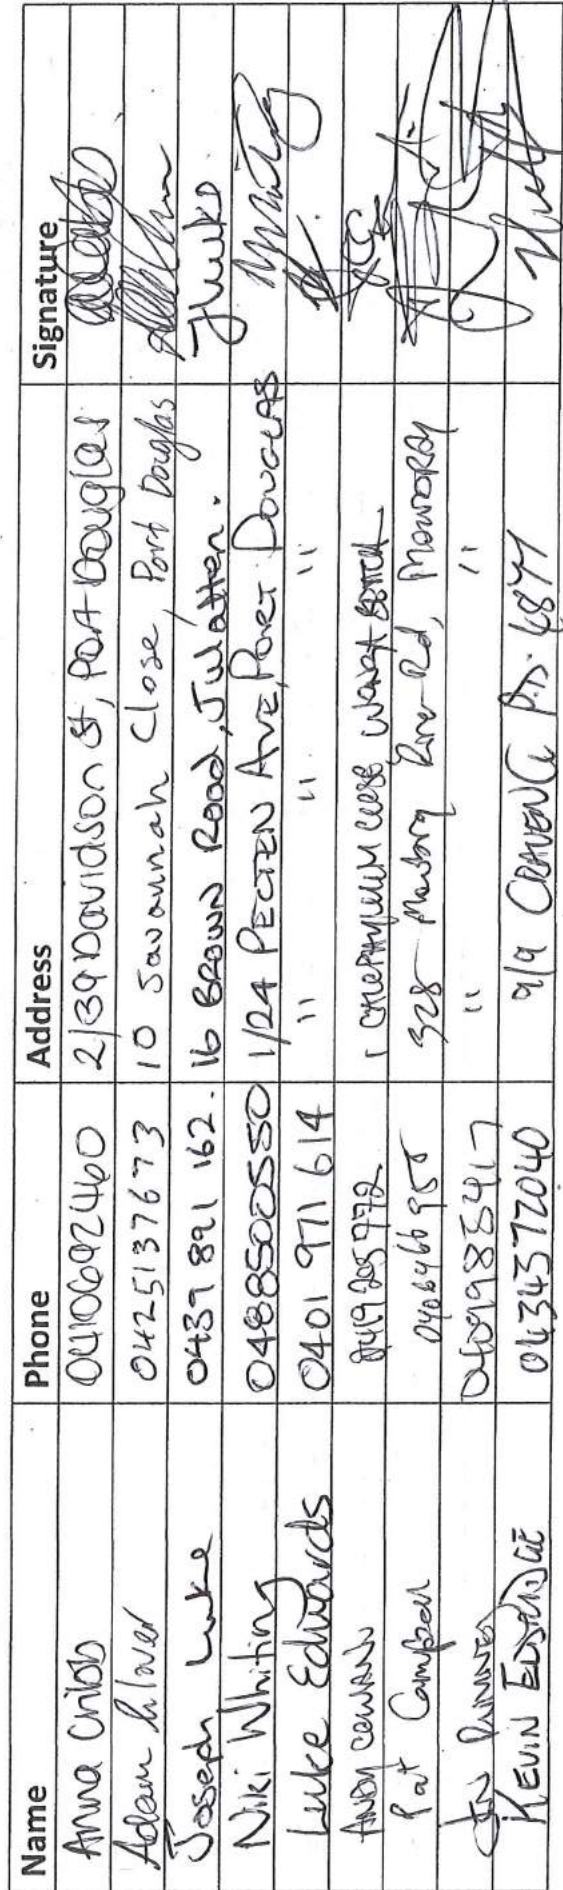 Name Phone Address Signature
Anna Cribb 0410692460 2/39 Davidson St, Port Douglas
Adam 0425137673 10 Savannah Close, Port Douglas
Joseph Luke 0439 891 162. 16 BROWN Road, Julatten. JLuke
Niki Whiting 0488500550 1/24 PECTEN AVE, PORT DOUGLAS
Luke Edwards 0401 971 614 " " "
ANDY COWAN 0419 205 972 1 CLOSE
Pat Campbell 0406466955 328 Mowbray River Rd, MOWBRAY
0409985417 " "
KEVIN 0434372040 9/9 CRAVEN Cl P.D. 4877